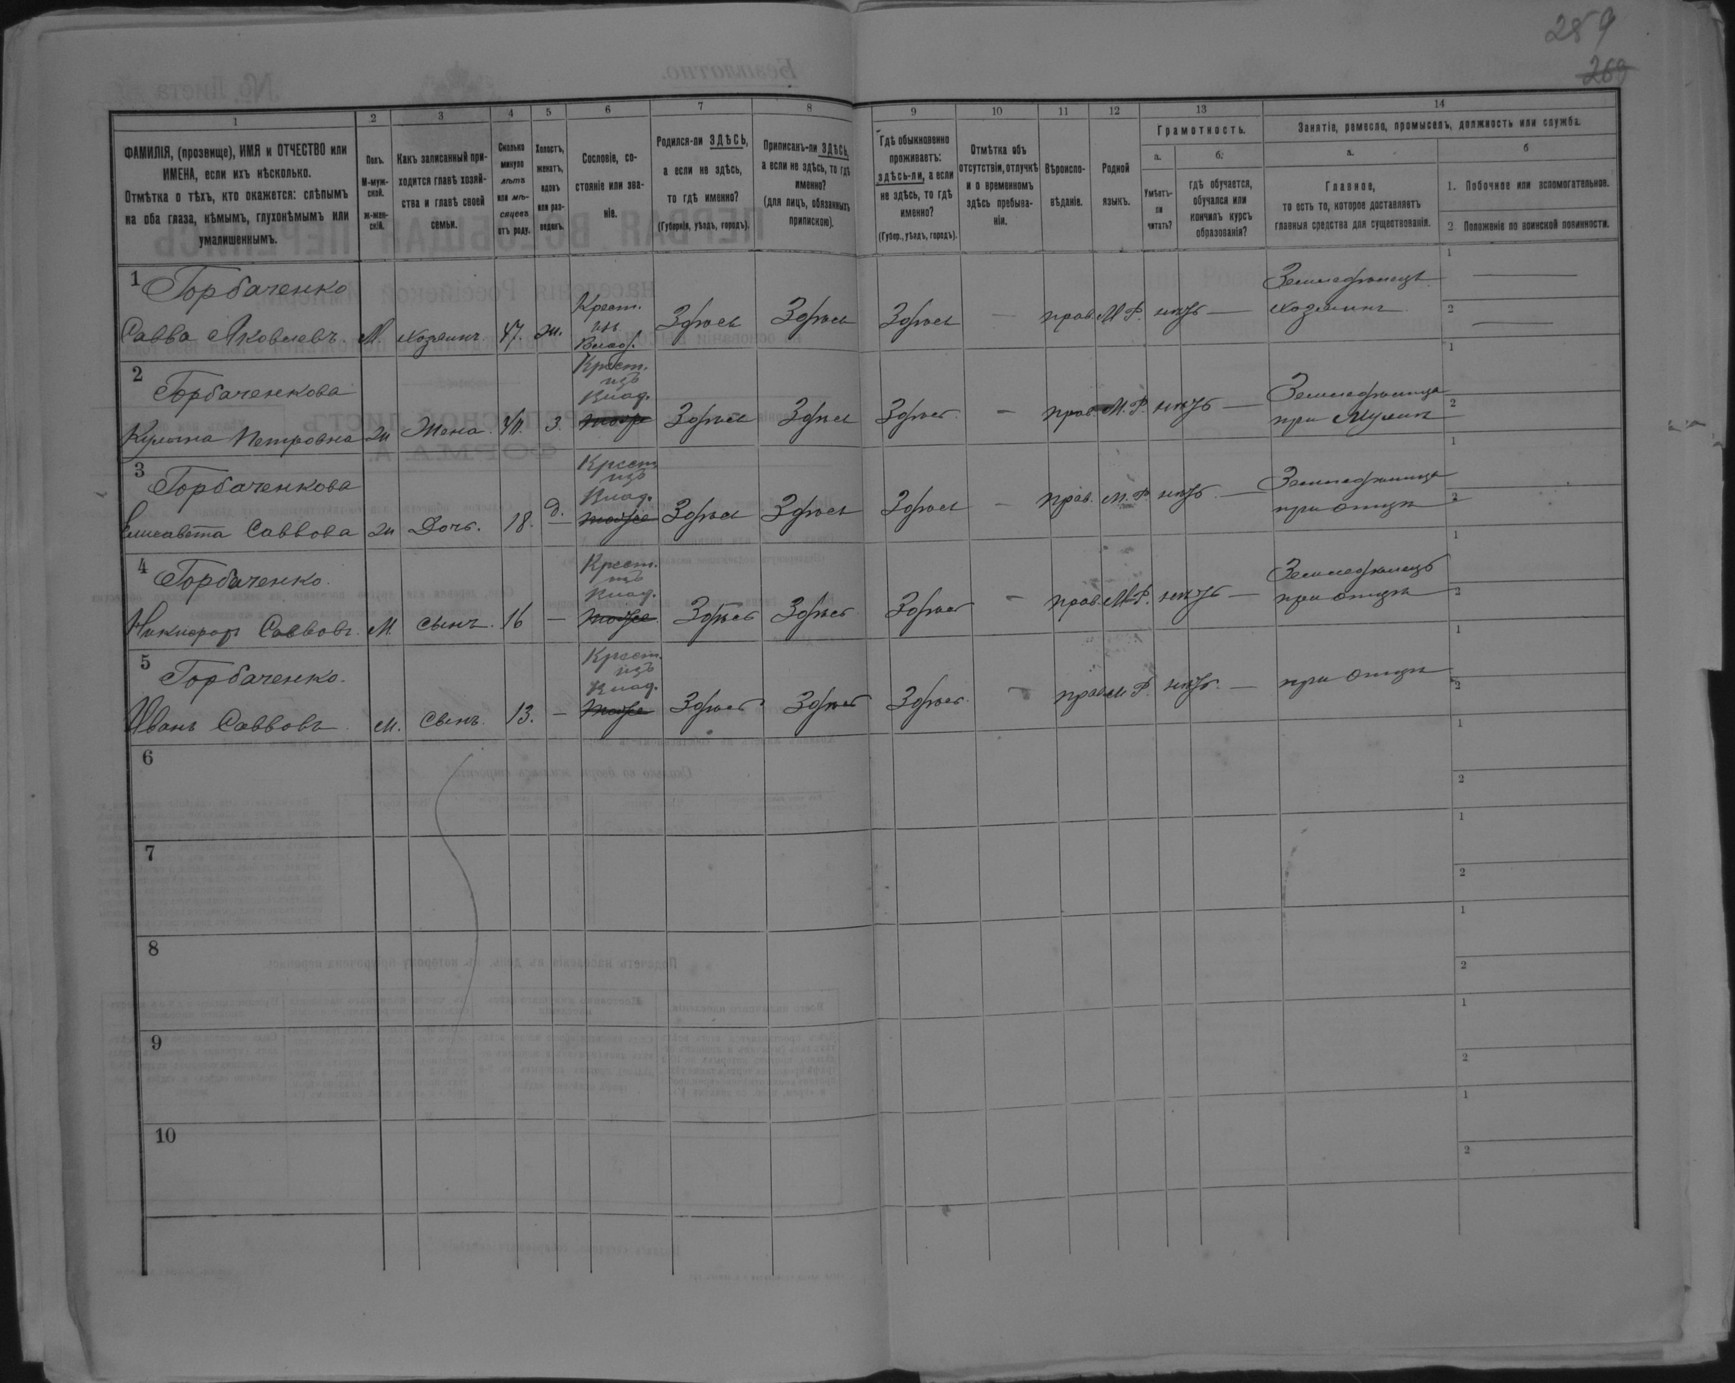 289
269
1 2 3 4 5 6 7 8 9 10 11 12 13 14
ФАМИЛІЯ, (прозвище), ИМЯ и ОТЧЕСТВО или
ИМЕНА, если ихъ нѣсколько.
Отмѣтка о тѣхъ, кто окажется: слѣпымъ
на оба глаза, нѣмымъ, глухонѣмымъ или
умалишеннымъ.
Полъ.
М-муж-
ской.
Ж-жен-
скій.
Какъ записанный при-
ходится главѣ хозяй-
ства и главѣ своей
семьи.
Сколько
минуло
лѣтъ
или мѣ-
сяцевъ
отъ роду.
Холостъ,
женатъ,
вдовъ
или раз-
веденъ.
Сословіе, со-
стояніе или зва-
ніе.
Родился-ли ЗДѢСЬ,
а если не здѣсь,
то гдѣ именно?
(Губернія, уѣздъ, городъ).
Приписанъ-ли ЗДѢСЬ,
а если не здѣсь, то гдѣ
именно?
(для лицъ, обязанныхъ
припискою).
Гдѣ обыкновенно
проживаетъ:
здѣсь-ли, а если
не здѣсь, то гдѣ
именно?
(Губер., уѣздъ, городъ).
Отмѣтка объ
отсутствіи, отлучкѣ
и о временномъ
здѣсь пребыва-
ніи.
Вѣроиспо-
вѣданіе.
Родной
языкъ.
Грамотность.
а.
Умѣетъ-
ли
читать?
б.
гдѣ обучается,
обучался или
кончилъ курсъ
образованія?
Занятіе, ремесло, промыселъ, должность или служба.
а.
Главное,
то есть то, которое доставляетъ
главныя средства для существованія.
б
1. Побочное или вспомогательное.
2 Положеніе по воинской повинности.
1 Горбаченко
Савва Яковлевъ. М. хозяинъ. 47. ж. Крест. изъ Влад. Здѣсь Здѣсь Здѣсь — прав. М.Р. нѣтъ — Земледѣлецъ хозяинъ 1 — 2 —
2 Горбаченкова
Петровна ж Жена. 40. з. Крест. изъ Влад. тоже Здѣсь Здѣсь Здѣсь — прав. М.Р. нѣтъ — Земледѣлица при мужѣ 1 2
3 Горбаченкова
Елисавета Саввова ж Дочь. 18. д. Крест. изъ Влад. тоже Здѣсь Здѣсь Здѣсь — прав. М.Р. нѣтъ — Земледѣлица при отцѣ 1 2
4 Горбаченко.
Никифоръ Саввовъ. М. сынъ. 16 — Крест. изъ Влад. тоже Здѣсь Здѣсь Здѣсь — прав. М.Р. нѣтъ — Земледѣлецъ при отцѣ 1 2
5 Горбаченко.
Иванъ Саввовъ м. сынъ. 13. — Крест. изъ Влад. тоже Здѣсь Здѣсь Здѣсь — прав. М.Р. нѣтъ — при отцѣ 1 2
6 1 2
7 1 2
8 1 2
9 1 2
10 1 2